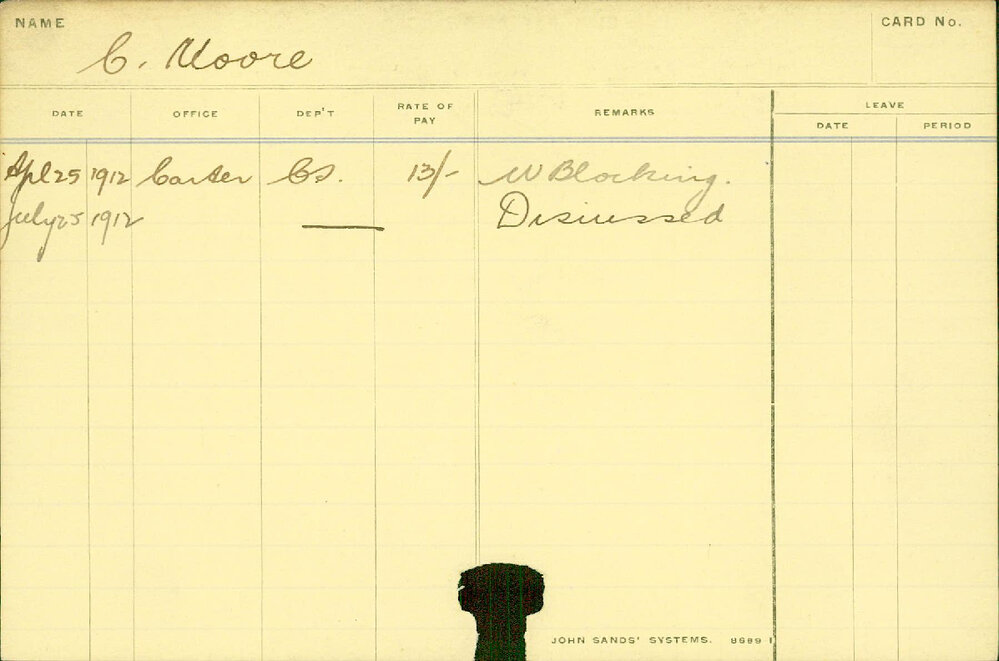 NAME C. Moore CARD No.
DATE OFFICE DEP'T RATE OF PAY REMARKS LEAVE
DATE PERIOD
Apl 25 1912 Carter Cs. 13/- W Blocking.
July 25 1912 — Dismissed
JOHN SANDS' SYSTEMS. 8689